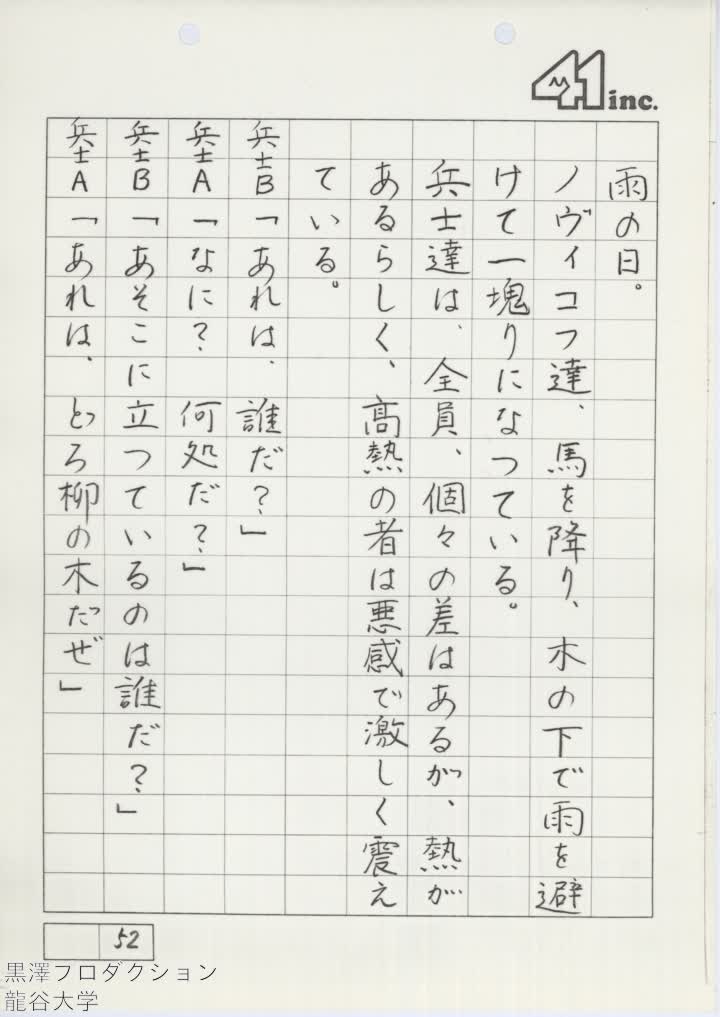 41 inc.
雨の日。
ノヴィコフ達、馬を降り、木の下で雨を避
けて一塊りになっている。
兵士達は、全員、個々の差はあるが、熱が
あるらしく、高熱の者は悪感で激しく震え
ている。
兵士B「あれは、誰だ?」
兵士A「なに? 何処だ?」
兵士B「あそこに立つているのは誰だ?」
兵士A「あれは、とろ柳の木だぜ」
52
黒澤プロダクション
龍谷大学